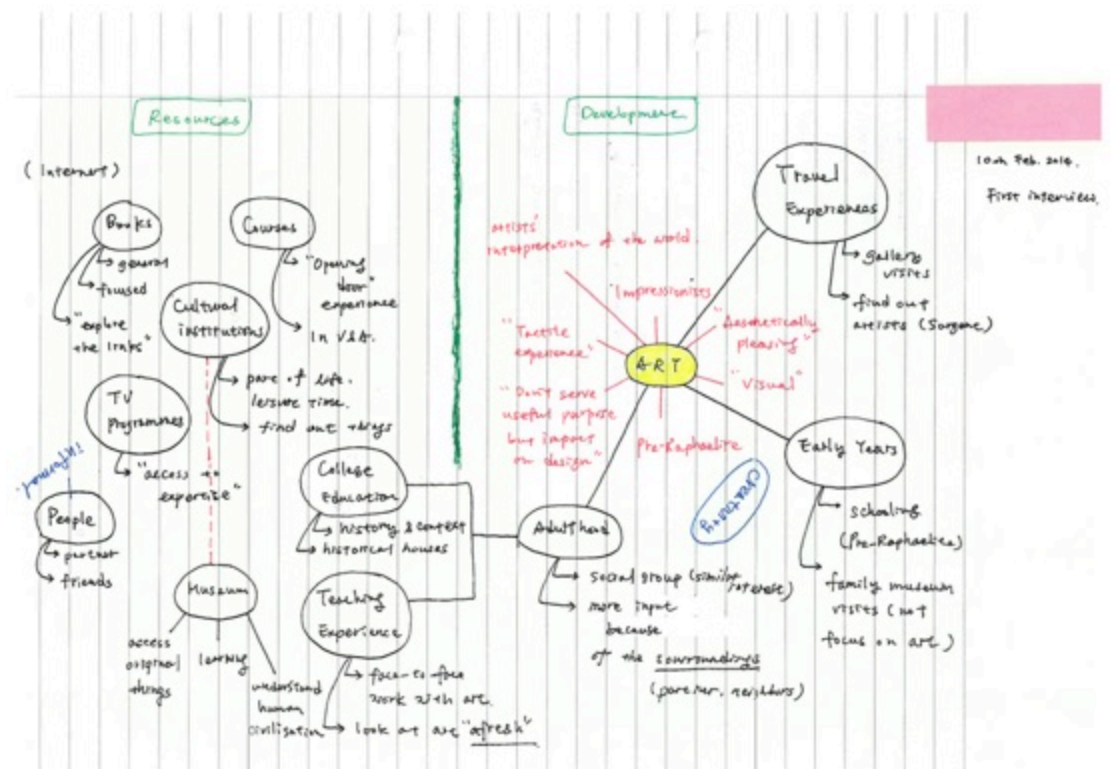 Resources
Development
10th Feb. 2014.
First interview.
(Internet)
Books
general
focused
"explore
the links"
Courses
"Opening
door"
experience
In V&A.
Cultural
institutions
part of life.
leisure time.
find out things
TV
Programmes
"access to
expertise"
People
partner
friends
Museum
access
original
things
learning
understand
human
civilisation
College
Education
history & context
historical houses
Teaching
Experience
face-to face
work with art.
look at art "afresh"
artists'
interpretation of the world.
"Impressionists
"Tactile
experience"
"Aesthetically
pleasing"
ART
"Visual"
"Don't serve
useful purpose
but impact
on design"
Pre-Raphaelite
Travel
Experiences
gallery
visits
find out
artists (Surgene)
Early Years
schooling
(Pre-Raphaelite)
family museum
visits (not
focus on art)
Adulthood
social group (similar
interest)
more input
because
of the sourroundings
(partner, neighbors)